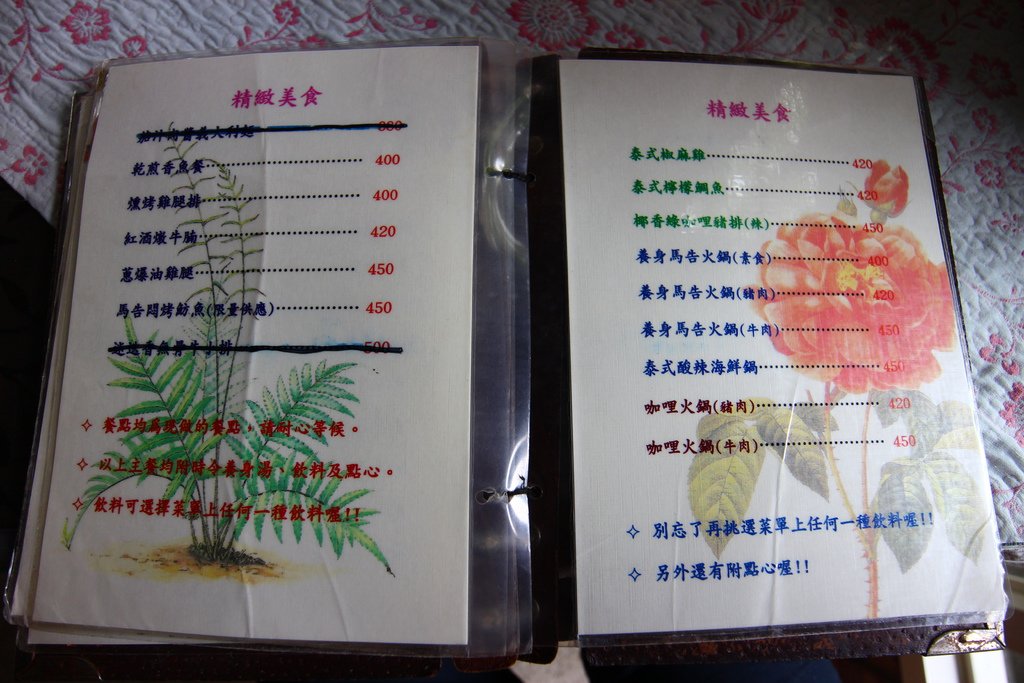 精緻美食
茄汁肉醬義大利麵 380
乾煎香魚餐 400
燻烤雞腿排 400
紅酒燉牛腩 420
蔥爆油雞腿 450
馬告悶烤魴魚(限量供應) 450
香魚骨牛小排 500
✧ 餐點均為現做的餐點，請耐心等候。
✧ 以上主餐均附時令養身湯、飲料及點心。
✧ 飲料可選擇菜單上任何一種飲料喔!!
精緻美食
泰式椒麻雞 420
泰式檸檬鯛魚 420
椰香綠咖哩豬排(辣) 450
養身馬告火鍋(素食) 400
養身馬告火鍋(豬肉) 420
養身馬告火鍋(牛肉) 450
泰式酸辣海鮮鍋 450
咖哩火鍋(豬肉) 420
咖哩火鍋(牛肉) 450
✧ 別忘了再挑選菜單上任何一種飲料喔!!
✧ 另外還有附點心喔!!